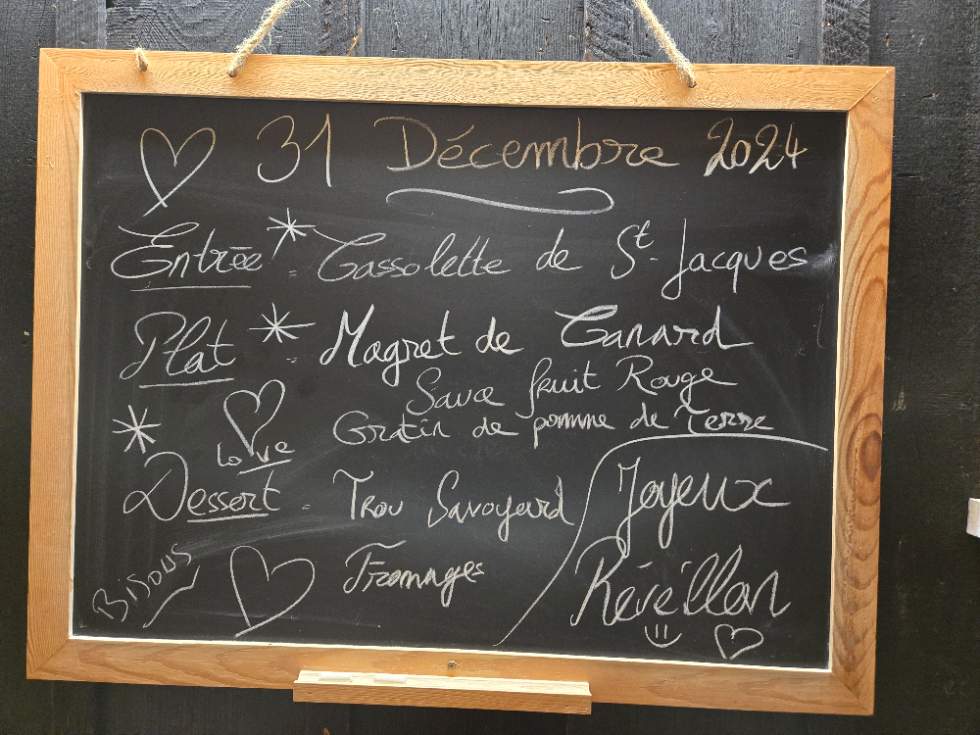 31 Décembre 2024
Entrée = Cassolette de St. Jacques
Plat = Magret de Canard
Sauce fruit Rouge
Gratin de pomme de Terre
Love
Dessert = Trou Savoyard
Fromages
Bisous
Joyeux
Réveillon